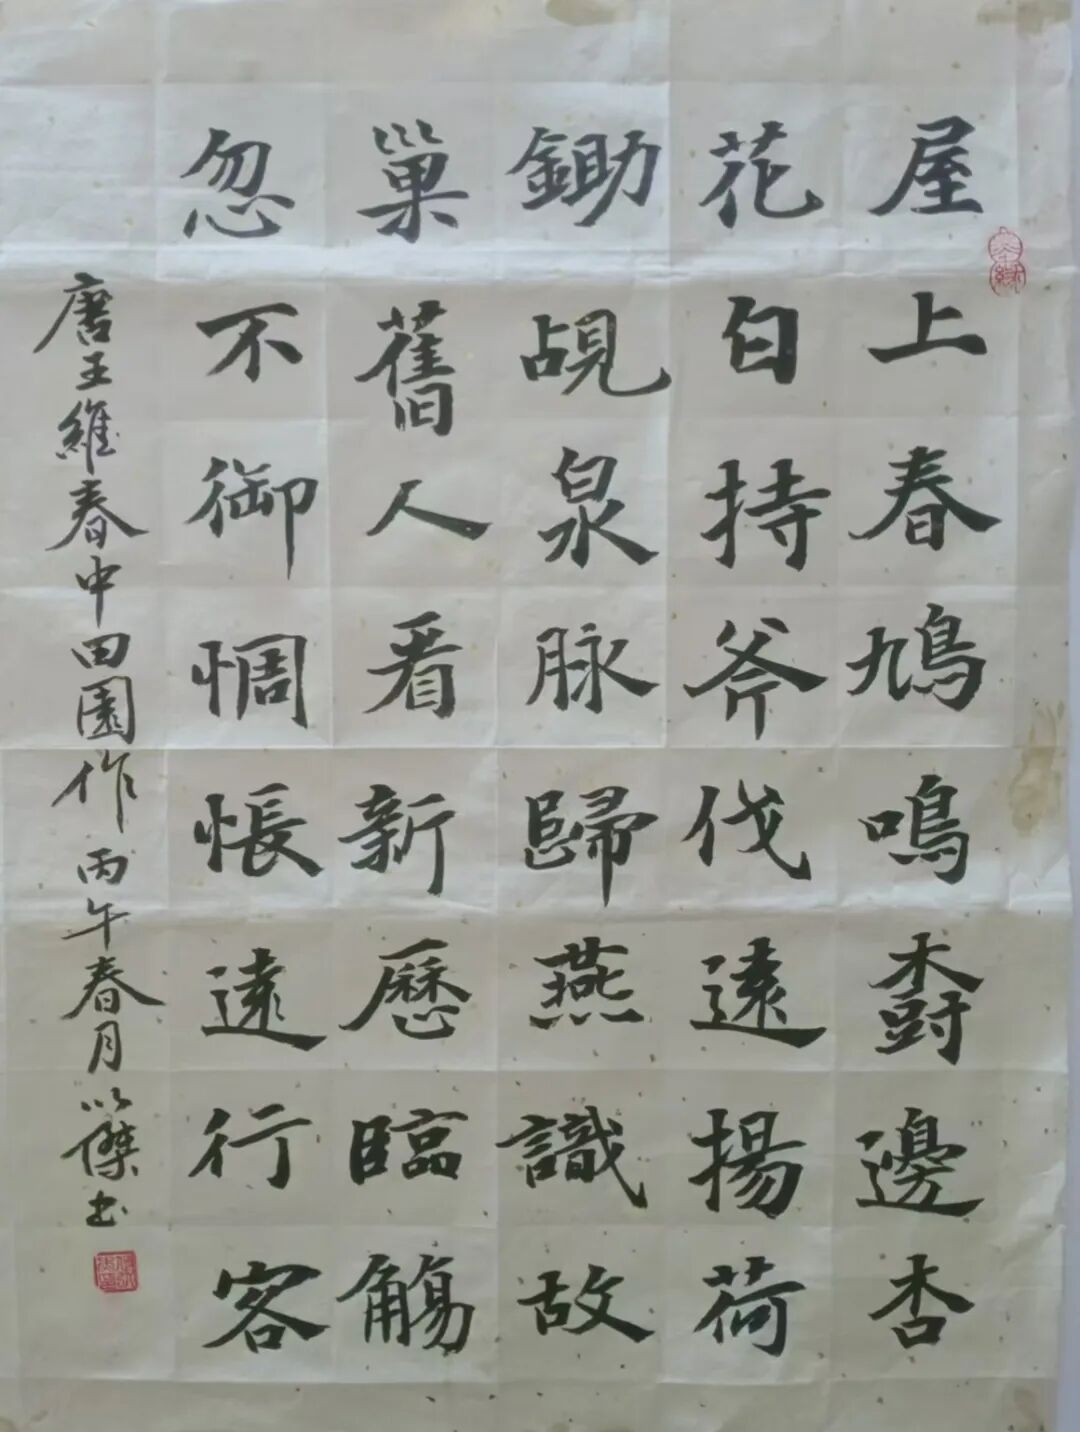 屋上春鳩鳴邊杏
花白持斧伐遠揚荷
鋤覘泉脉歸燕識故
巢舊人看新曆臨觴
忽不御惆悵遠行客
唐王維春中田園作丙午春月以傑书